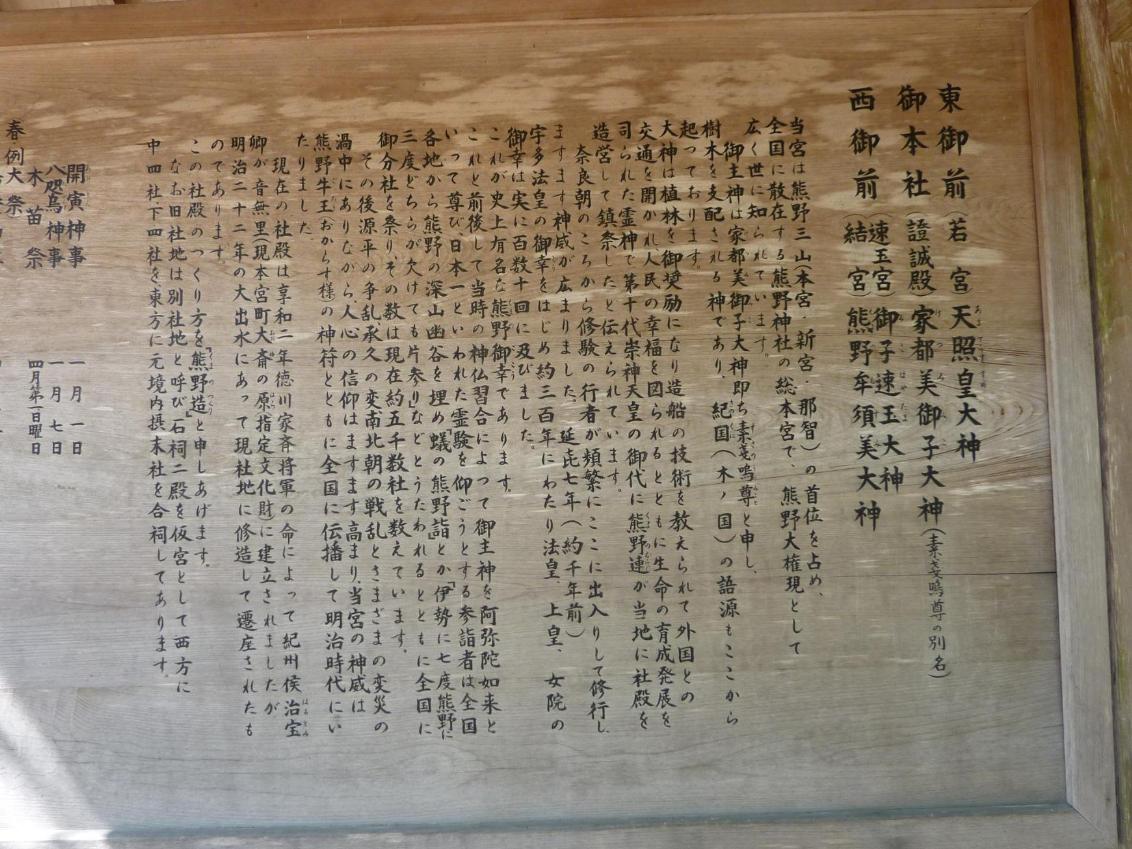 東御前(若宮)天照皇大神
御本社(證誠殿)家都美御子大神(素戔嗚尊の別名)
西御前(速玉宮)御子速玉大神
(結宮)熊野牟須美大神
当宮は熊野三山(本宮・新宮・那智)の首位を占め、
全国に散在する熊野神社の総本宮で、熊野大権現として
広く世に知られています。
御主神は家都美御子大神即ち素戔嗚尊と申し、
樹木を支配される神であり、紀国(木ノ国)の語源もここから
起っております。
大神は植林を御奨励になり造船の技術を教えられて外国との
交通を開かれ人民の幸福を図られるとともに生命の育成発展を
司られた霊神で第十代崇神天皇の御代に熊野連が当地に社殿を
造営して鎮祭したと伝えられています。
奈良朝のころから修験の行者が頻繁にここに出入りして修行し
ますます神威が広まりました。延㐂七年(約千年前)
宇多法皇の御幸をはじめ約三百年にわたり法皇、上皇、女院の
御幸は実に百数十回に及びました。
これが史上有名な熊野御幸であります。
これと前後して当時の神仏習合によつて御主神を阿弥陀如来と
いって尊び日本一といわれた霊験を仰ごうとする参詣者は全国
各地から熊野の深山幽谷を埋め蟻の熊野詣とか「伊勢に七度熊野に
三度どちらが欠けても片参り」などとうたわれるとともに全国に
御分社を祭り、その数は現在約五千数社を数えています。
その後源平の争乱承久の変南北朝の戦乱とさまざまの変災の
渦中にありながら、人心の信仰はますます高まり、当宮の神威は
熊野牛王(おからす様)の神符とともに全国に伝播して明治時代にい
たりました
現在の社殿は享和二年徳川家斉将軍の命によって紀州侯治宝
卿が音無里(現本宮町大斎の原指定文化財)に建立されましたが
明治二十二年の大出水にあって現社地に修造して遷座されたも
のであります。
この社殿のつくり方を「熊野造」と申しあげます。
なお旧社地は別社地と呼び石祠二殿を仮宮として西方に
中四社下四社を東方に元境内摂末社を合祠してあります。
開寅神事 一月一日
八咫烏神事 一月七日
木苗祭 四月第一日曜日
春例大祭